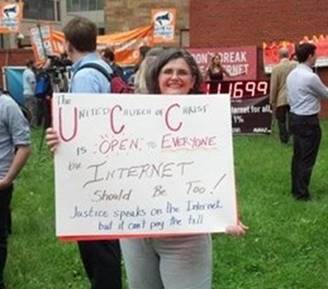 The
UNITED CHURCH OF CHRIST
IS "OPEN" TO EVERYONE
the INTERNET
Should Be Too!
Justice speaks on the Internet
but it can't pay the bill
DON'T BREAK
INTERNET
11699
net for all,
1%